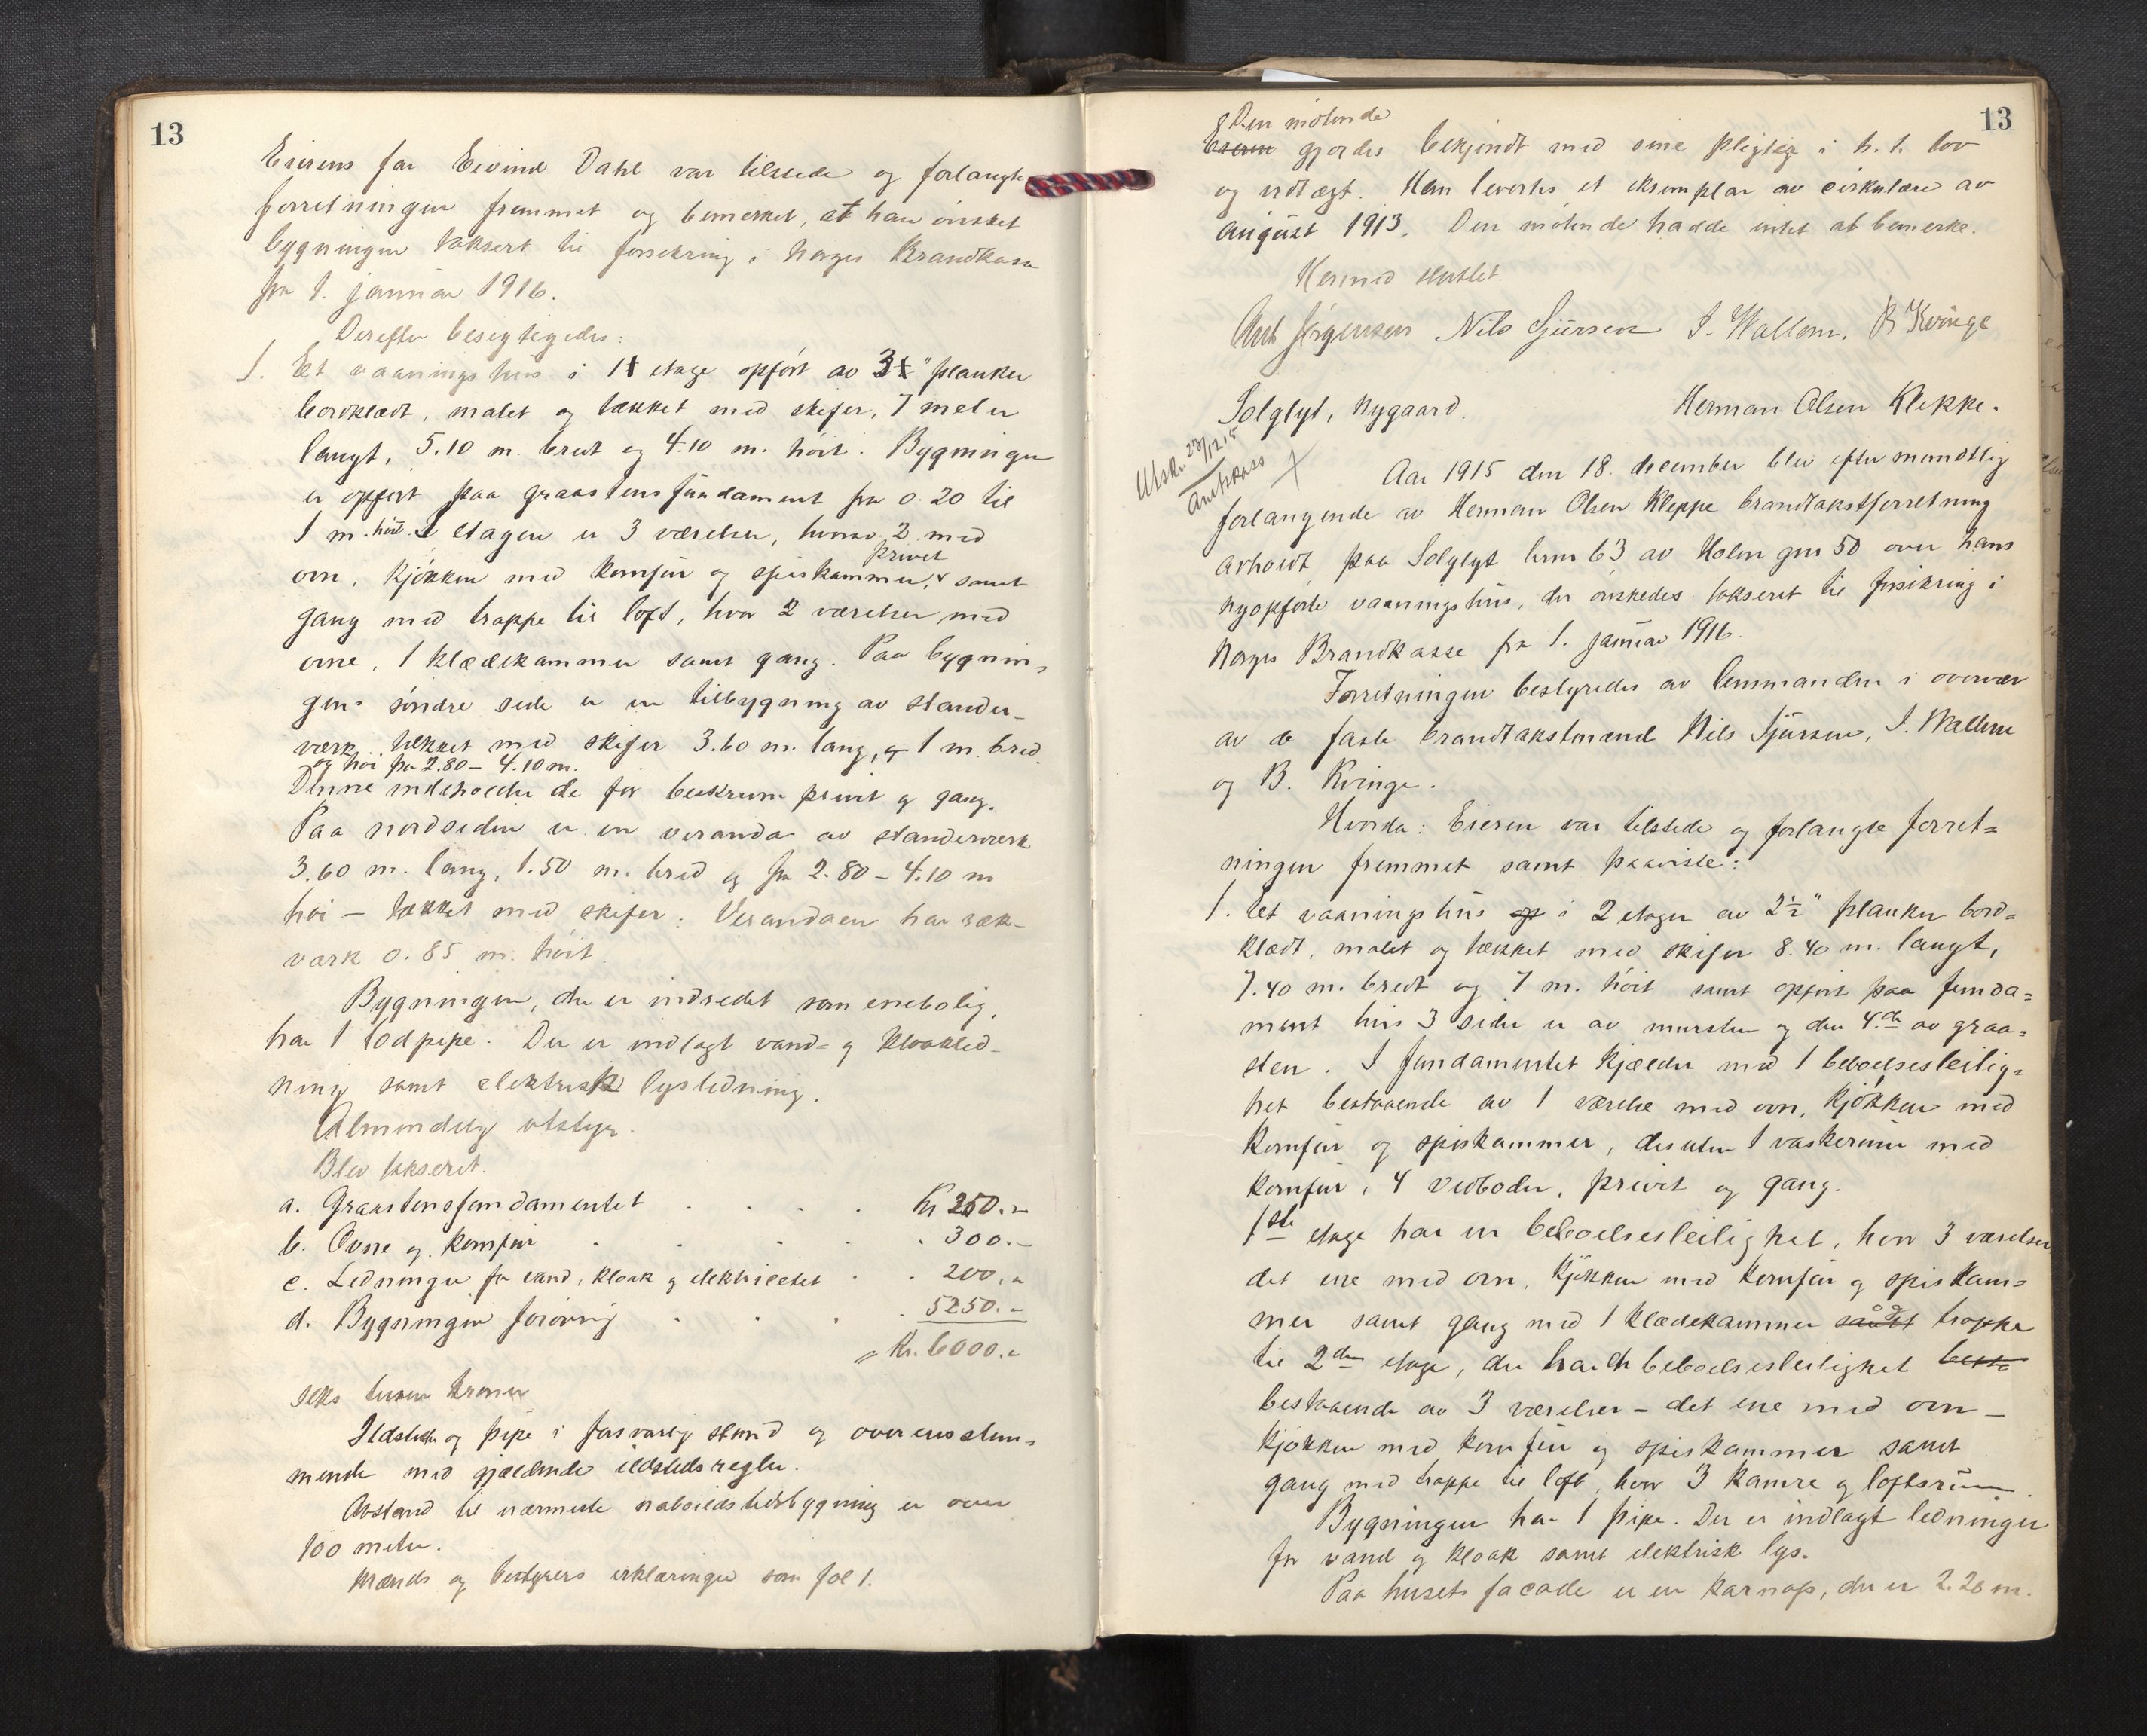 13
Eierens far Eivind Dahl var tilstede og forlangte
forretningen fremmet og bemerket, at han ønsket
bygningen taksert til forsikring i Norges Brandkasse
fra 1. januar 1916.
Derefter besigtigedes:
1. Et vaaningshus i 1 etage opført av 3" planker
bordklædt, malet og tækket med skifer, 7 meter
langt, 5.10 m. bredt og 4.10 m. høit. Bygningen
er opført paa graastensfundament fra 0.20 til
1 m. høit. I etagen er 3 værelser, hvorav 2 med
privet
ovn, kjøkken med komfur og spiskammer, samt
gang med trappe til loft, hvor 2 værelser med
ovne, 1 klædekammer samt gang. Paa bygnin-
gens søndre side er en tilbygning av stander-
værk, tækket med skifer 3.60 m. lang, og 1 m. bred
og høi fra 2.80 – 4.10 m.
Denne indeholder de før beskrevne privet og gang.
Paa nordsiden er en veranda av standerverk
3.60 m. lang, 1.50 m. bred og fra 2.80 – 4.10 m
høi – tækket med skifer. Verandaen har ræk-
værk 0.85 m. høit.
Bygningen, der er indredet som enebolig,
har 1 lodpipe. Der er indlagt vand- og kloakled-
ning samt elektrisk lysledning.
Almindelig utstyr.
Blev takseret.
a. Graastensfundamentet . . . . Kr 250.–
b. Ovne og komfur . . . . 300.–
c. Ledninger for vand, kloak og elektricitet . . 200.–
d. Bygningen forøvrig . . . . 5250.–
= Kr. 6000.–
seks tusen kroner
Ildsteder og pipe i forsvarlig stand og overensstem-
mende med gjældende ildstedsregler.
Avstand til nærmeste naboildstedsbygning er over
100 meter.
Mænds og bestyrers erklæringer som fol 1.
13
Den møtende
Eieren gjordes bekjendt med sine pligter i h. t. lov
og vedtægt. Han levertes et eksemplar av cirkulære av
august 1913. Den møtende hadde intet at bemerke.
Hermed sluttet.
Ant Jørgensen Nils Sjursen I. Wallem. B Kvinge
Solglyt, Nygaard. Herman Olsen Kleppe.
Utskr. 23/12 15
Amtskass
Aar 1915 den 18. december blev efter mundtlig
forlangende av Herman Olsen Kleppe brandtakstforretning
avholdt paa Solglyt brn 63 av Holen gnr 50 over hans
nyopførte vaaningshus, der ønskedes takseret til forsikring i
Norges Brandkasse fra 1. januar 1916.
Forretningen bestyredes av lensmanden i overvær
av de faste brandtakstmænd Nils Sjursen, I. Wallem
og B. Kvinge.
Hvorda: Eieren var tilstede og forlangte forret=
ningen fremmet samt paaviste:
1. Et vaaningshus op i 2 etager av 2½" planker bord=
klædt, malet og tækket med skifer 8.40 m. langt,
7.40 m. bredt og 7 m. høit samt opført paa funda=
ment hvis 3 sider er av mursten og den 4.de av graa=
sten. I fundamentet kjælder med 1 beboelsesleilig=
het bestaaende av 1 værelse med ovn, kjøkken med
komfur og spiskammer, desuten 1 vaskerum med
komfur, 4 vedboder, privet og gang.
1ste etage har en beboelsesleilighet, hvor 3 værelser
det ene med ovn, kjøkken med komfur og spiskam=
mer samt gang med 1 klædekammer samt trappe
til 2den etage, der har en beboelsesleilighet besta
bestaaende av 3 værelser – det ene med ovn –
kjøkken med komfur og spiskammer samt
gang med trappe til loft, hvor 3 kamre og loftsrum.
Bygningen har 1 pipe. Der er indlagt ledninger
for vand og kloak samt elektrisk lys.
Paa husets facade er en karnap, der er 2.20 m.